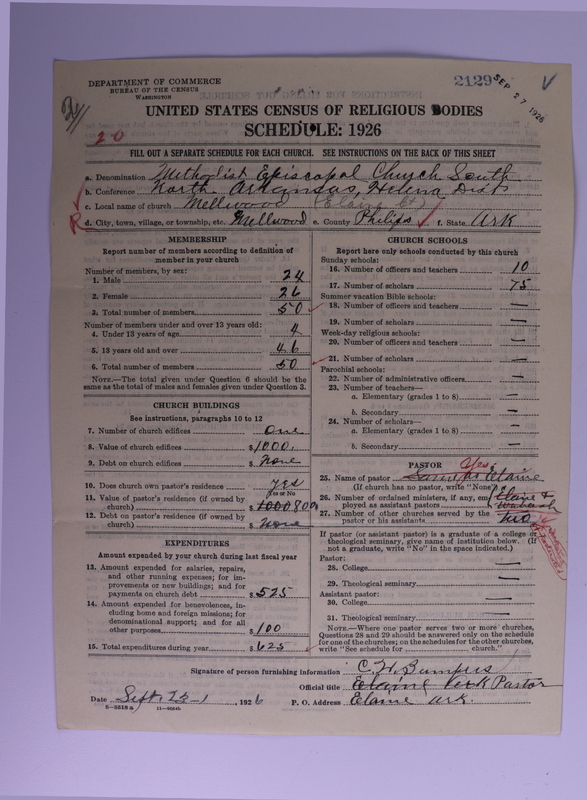 DEPARTMENT OF COMMERCE
BUREAU OF THE CENSUS
WASHINGTON
2129 SEP 27 1926
UNITED STATES CENSUS OF RELIGIOUS BODIES
SCHEDULE: 1926
20
FILL OUT A SEPARATE SCHEDULE FOR EACH CHURCH. SEE INSTRUCTIONS ON THE BACK OF THIS SHEET
a. Denomination Methodist Episcopal Church South
b. Conference North Arkansas, Helena Dist
c. Local name of church Mellwood (Elaine Ct)
d. City, town, village, or township, etc. Mellwood e. County Philips f. State Ark
MEMBERSHIP
Report number of members according to definition of member in your church
Number of members, by sex:
1. Male 24
2. Female 26
3. Total number of members 50
Number of members under and over 13 years old:
4. Under 13 years of age 4
5. 13 years old and over 46
6. Total number of members 50
NOTE.—The total given under Question 6 should be the same as the total of males and females given under Question 3.
CHURCH BUILDINGS
See instructions, paragraphs 10 to 12
7. Number of church edifices One
8. Value of church edifices $1000
9. Debt on church edifices $ None
10. Does church own pastor's residence yes
Yes or No
11. Value of pastor's residence (if owned by church) $
12. Debt on pastor's residence (if owned by church) $ None
EXPENDITURES
Amount expended by your church during last fiscal year
13. Amount expended for salaries, repairs, and other running expenses; for improvements or new buildings; and for payments on church debt $525
14. Amount expended for benevolences, including home and foreign missions; for denominational support; and for all other purposes $100
15. Total expenditures during year $625
CHURCH SCHOOLS
Report here only schools conducted by this church
Sunday schools:
16. Number of officers and teachers 10
17. Number of scholars 75
Summer vacation Bible schools:
18. Number of officers and teachers —
19. Number of scholars —
Week-day religious schools:
20. Number of officers and teachers —
21. Number of scholars —
Parochial schools:
22. Number of administrative officers —
23. Number of teachers—
a. Elementary (grades 1 to 8) —
b. Secondary —
24. Number of scholars—
a. Elementary (grades 1 to 8) —
b. Secondary —
PASTOR
Yes
25. Name of pastor Same as Elaine
(If church has no pastor, write "None")
26. Number of ordained ministers, if any, employed as assistant pastors
27. Number of other churches served by the pastor or his assistants two
If pastor (or assistant pastor) is a graduate of a college or theological seminary, give name of institution below. (If not a graduate, write "No" in the space indicated.)
Pastor:
28. College —
29. Theological seminary —
Assistant pastor:
30. College —
31. Theological seminary —
NOTE.—Where one pastor serves two or more churches, Questions 28 and 29 should be answered only on the schedule for one of the churches; on the schedules for the other churches, write "See schedule for church."
Signature of person furnishing information C. H. Bumpus
Official title Elaine Pastor
Date Sept. 25-, 1926 P. O. Address Elaine Ark.
8-5218 a